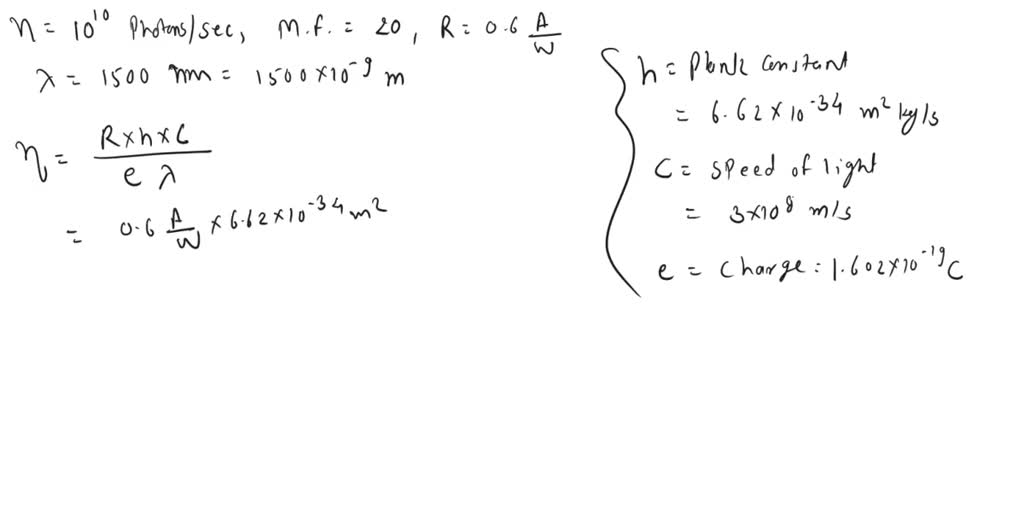 η = 10¹⁰ Photons/sec, M.f. = 20, R = 0.6 A/W
λ = 1500 nm = 1500×10⁻⁹ m
η = R×h×C / e λ
= 0.6 A/W × 6.62×10⁻³⁴ m²
h = Plank constant
= 6.62×10⁻³⁴ m² kg/s
C = speed of light
= 3×10⁸ m/s
e = charge = 1.602×10⁻¹⁹ C